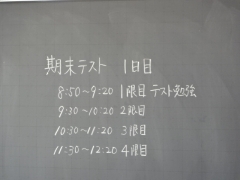 期末テスト 1日目
8:50~9:20 1限目 テスト勉強
9:30~10:20 2限目
10:30~11:20 3限目
11:30~12:20 4限目